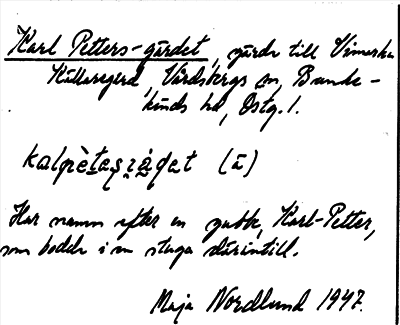 Karl Petters-gärdet, gärde till Vimarka
Källaregård, Vårdsbergs sn, Banke-
kinds hd, Östg. l.
kalpètasɟädet (ā)
Har namn efter en gubbe, Karl-Petter,
som bodde i en stuga därintill.
Maja Nordlund 1947.